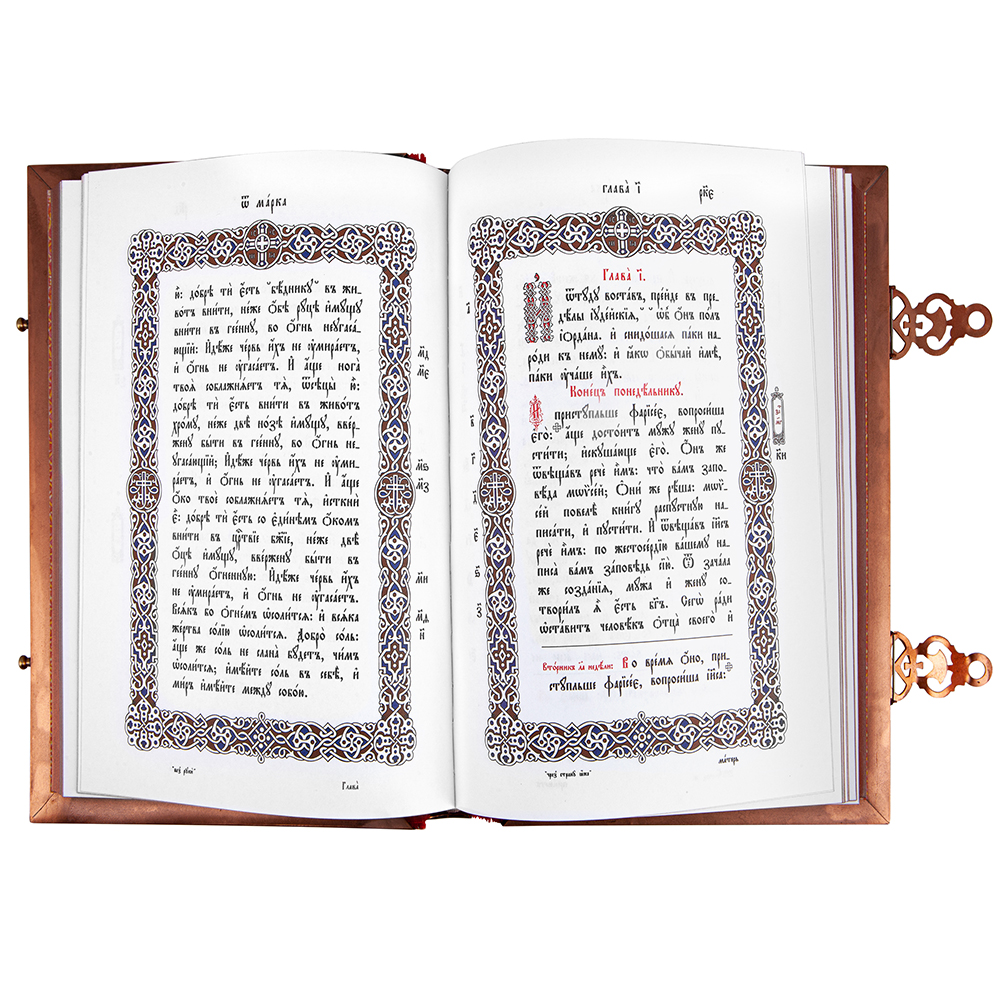 Ѿ ма́рка
ю҆̀: до́брѣ тѝ є҆́сть "бѣ́днику" въ жи-
во́тъ вни́ти, не́же ѻ҆́бѣ ру́цѣ и҆мꙋ́щꙋ
вни́ти въ гее́ннꙋ, во ѻ҆́гнь неꙋгаса́-
ющїй: И҆дѣ́же че́рвь и҆́хъ не ᲂу҆мира́етъ,
и҆ ѻ҆́гнь не ᲂу҆гаса́етъ. И҆ а҆́ще нога̀
твоѧ̀ соблажнѧ́етъ тѧ̀, ѿсѣцы̀ ю҆̀:
до́брѣ тѝ є҆́сть вни́ти въ живо́тъ
хро́мꙋ, не́же двѣ̀ но́зѣ и҆мꙋ́щꙋ, вве́р-
женꙋ бы́ти въ гее́ннꙋ, во ѻ҆́гнь не-
ᲂу҆гаса́ющїй: И҆дѣ́же че́рвь и҆́хъ не ᲂу҆ми-
ра́етъ, и҆ ѻ҆́гнь не ᲂу҆гаса́етъ. И҆ а҆́ще
ѻ҆́ко твоѐ соблажнѧ́етъ тѧ̀, и҆сткнѝ
є҆̀: до́брѣ тѝ є҆́сть со є҆ди́нѣмъ ѻ҆́комъ
вни́ти въ црⷭ҇твїе бж҃їе, не́же двѣ̀
ѻ҆́цѣ и҆мꙋ́щꙋ, вве́рженꙋ бы́ти въ
гее́ннꙋ ѻ҆́гненнꙋю: И҆дѣ́же че́рвь и҆́хъ
не ᲂу҆мира́етъ, и҆ ѻ҆́гнь не ᲂу҆гаса́етъ.
Всѧ́къ бо ѻ҆гне́мъ ѡ҆соли́тсѧ: и҆ всѧ́ка
же́ртва со́лїю ѡ҆соли́тсѧ. Добро̀ со́ль:
а҆́ще же со́ль не слана̀ бꙋ́детъ, чи́мъ
ѡ҆соли́тсѧ; и҆мѣ́йте со́ль въ себѣ̀, и҆
ми́ръ и҆мѣ́йте междꙋ̀ собо́ю.
м҃д
м҃є
м҃ѕ
м҃з
м҃и
м҃д
Глава̀
глава̀ і҃
рк҃є
Глава̀ і҃.
И҆ ѿтꙋ́дꙋ воста́въ, прїи́де въ пре-
дѣ́лы і҆ꙋде́йскїѧ, ѡ҆б̾ ѻ҆́нъ по́лъ
і҆ѻрда́на. и҆ снидо́шасѧ па́ки на-
ро́ди къ немꙋ̀: и҆ ꙗ҆́кѡ ѻ҆бы́чай и҆мѣ̀,
па́ки ᲂу҆ча́ше и҆̀хъ.
Коне́цъ понедѣ́льникꙋ.
И҆ пристꙋ́пльше фарїсе́є, вопроси́ша
є҆го̀: а҆́ще досто́итъ мꙋ́жꙋ женꙋ̀ пꙋ-
сти́ти; и҆скꙋша́юще є҆го̀. Ѻ҆́нъ же
ѿвѣща́въ речѐ и҆̀мъ: что̀ ва́мъ запо-
вѣ́да мѡѷсе́й; Ѻ҆ни́ же рѣ́ша: мѡѷ-
се́й повелѣ̀ кни́гꙋ распꙋ́стнꙋю на-
писа́ти, и҆ пꙋсти́ти. И҆ ѿвѣща́въ і҆и҃съ
речѐ и҆̀мъ: по жестосе́рдїю ва́шемꙋ на-
писа̀ ва́мъ за́повѣдь сїю̀. Ѿ нача́ла
же созда́нїѧ, мꙋ́жа и҆ женꙋ̀ со-
твори́лъ ѧ҆̀ є҆́сть бг҃ъ. Сегѡ̀ ра́ди
ѡ҆ста́витъ человѣ́къ ѻ҆тца̀ своего̀ и҆
Вто́рникъ л҃а недѣ́ли: В о вре́мѧ ѻ҆́но, при-
стꙋ́пльше фарїсе́є, вопроси́ша і҆и҃са:
ма́терь